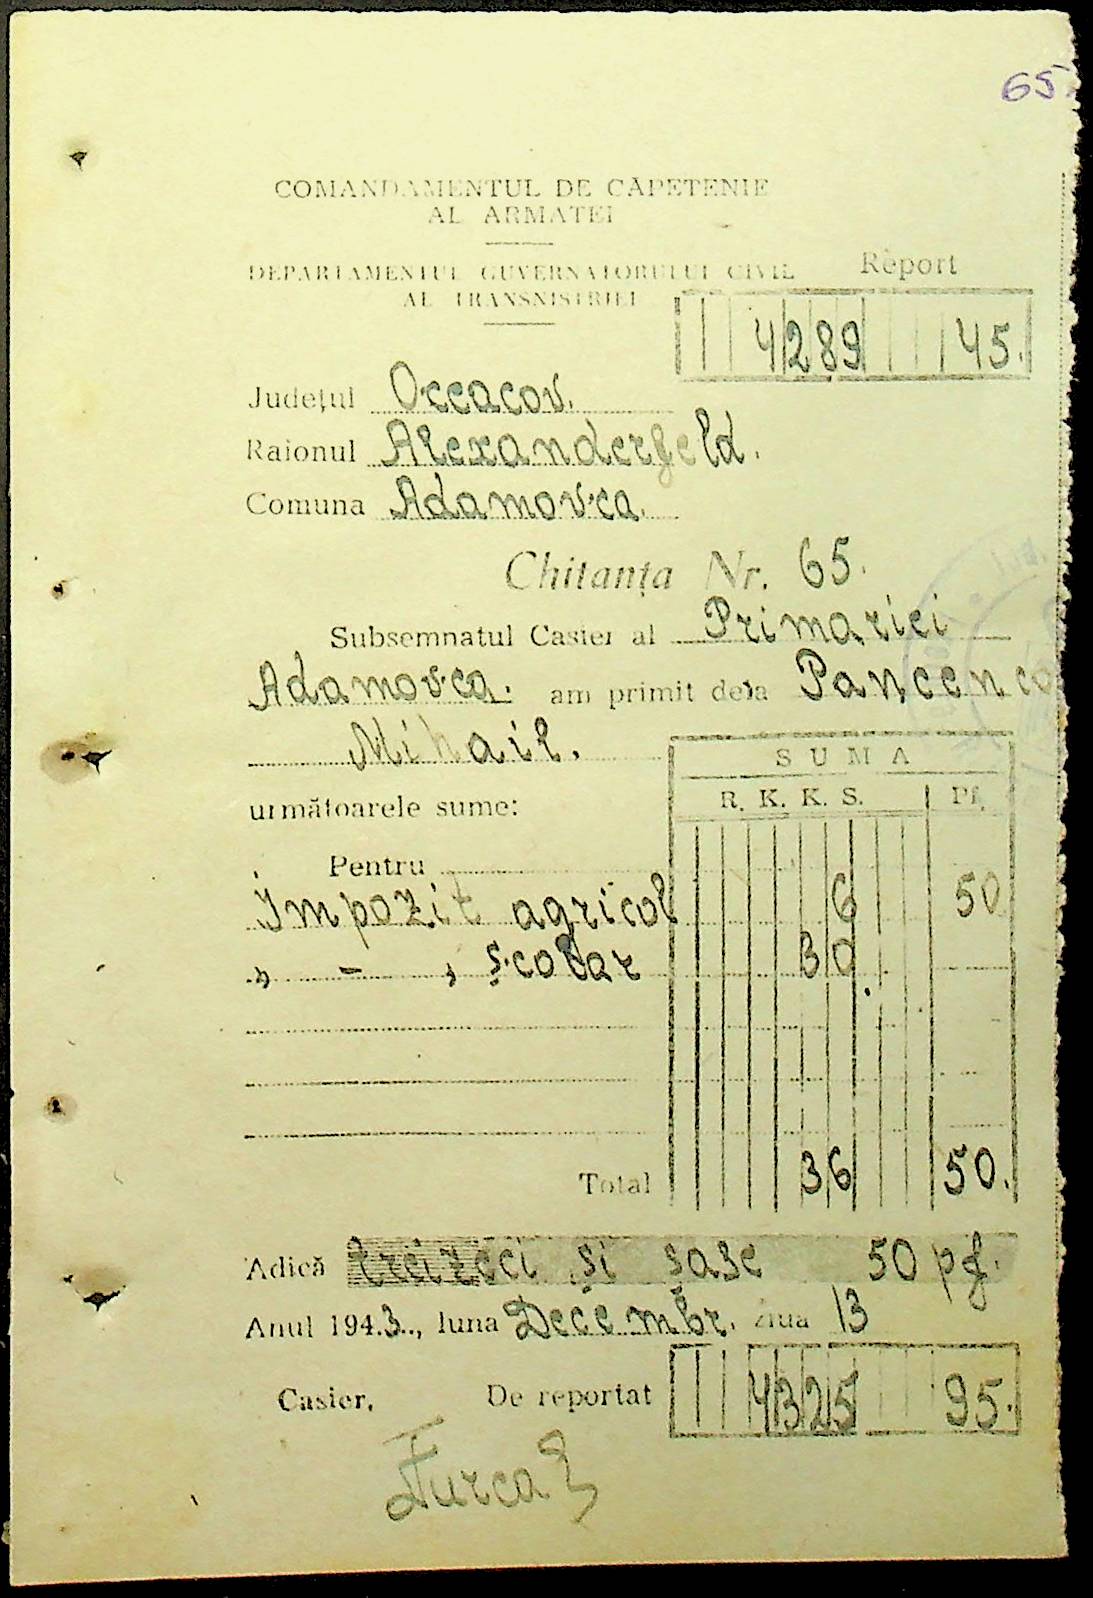 65.
COMANDAMENTUL DE CĂPETENIE
AL ARMATEI
DEPARTAMENTUL GUVERNATORULUI CIVIL
AL TRANSNISTRIEI
Report
4289 45.
Județul Oceacov.
Raionul Alexanderfeld.
Comuna Adamovca.
Chitanța Nr. 65.
Subsemnatul Casier al Primariei
Adamovca. am primit dela Pancenco
Mihail.
SUMA
R. K. K. S. Pf.
următoarele sume:
Pentru
Impozit agricol 6 50
„ - „ școlar 30 -
Total 36 50.
Adică treizeci și șase 50 pf.
Anul 1943., luna Decembr. ziua 13
Casier, De reportat 4325 95.